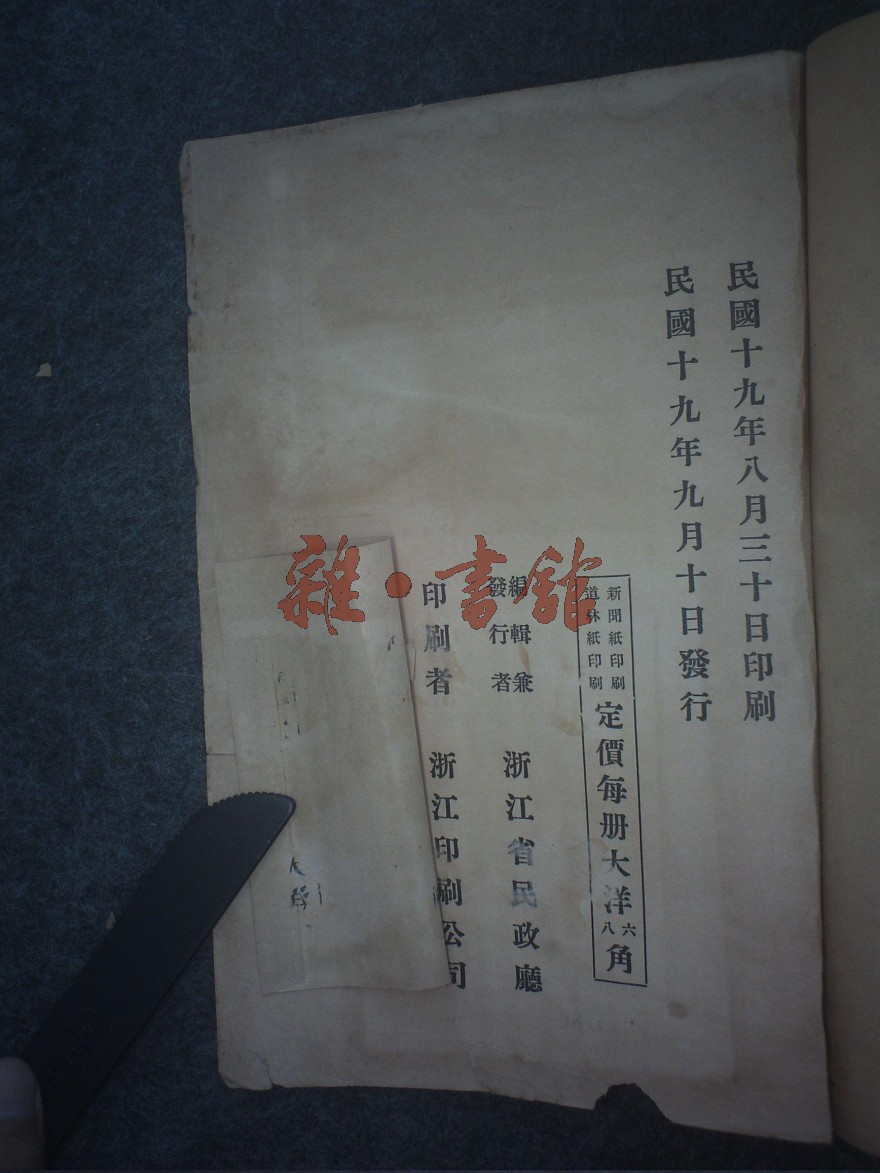 民國十九年八月三十日印刷
民國十九年九月十日發行
新聞紙印刷
道林紙印刷
定價每册大洋
六
八
角
編輯兼
發行者
浙江省民政廳
印刷者
浙江印刷公司
雜·書館